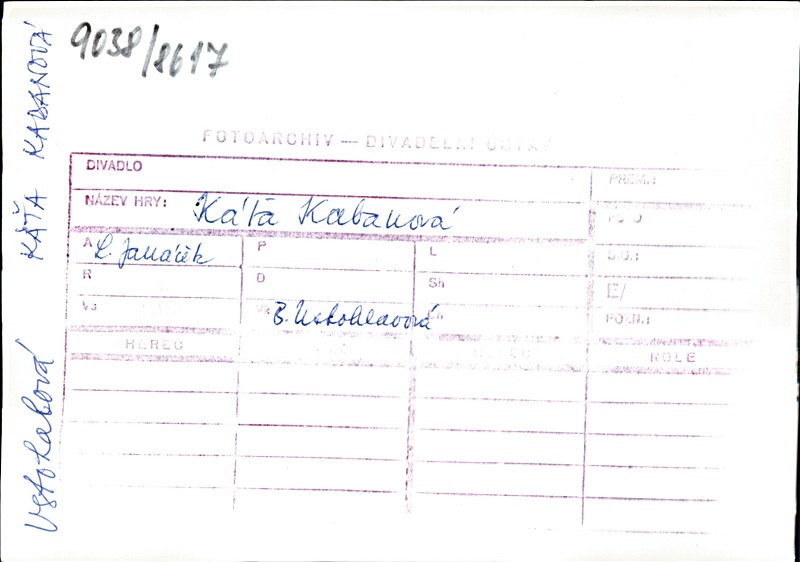 9038/8617
KÁŤA KABANOVÁ
FOTOARCHIV — DIVADELNÍ ÚSTAV
DIVADLO
PREM.:
NÁZEV HRY: Káťa Kabanová
A L. Janáček
P
L
D.O.:
R
D
Sh
E/
Vs
B. Ustohlavová
POZN.:
HEREC
ROLE